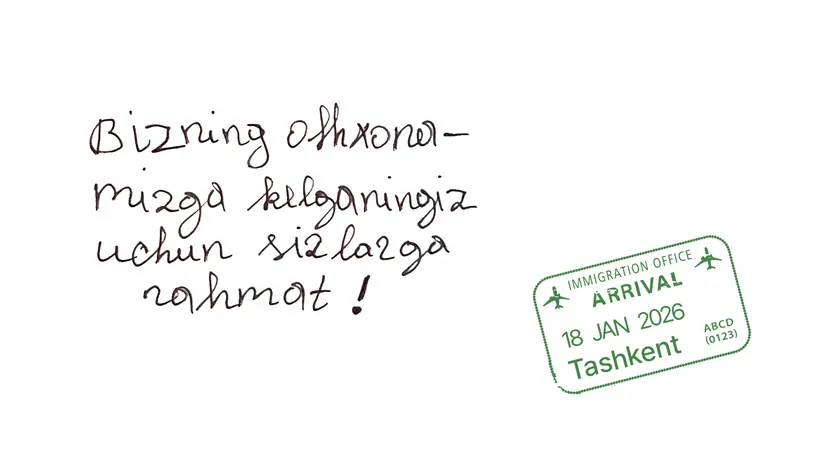 Bizning oshxona-
mizga kelganingiz
uchun sizlarga
rahmat!
IMMIGRATION OFFICE
ARRIVAL
18 JAN 2026
ABCD
(0123)
Tashkent